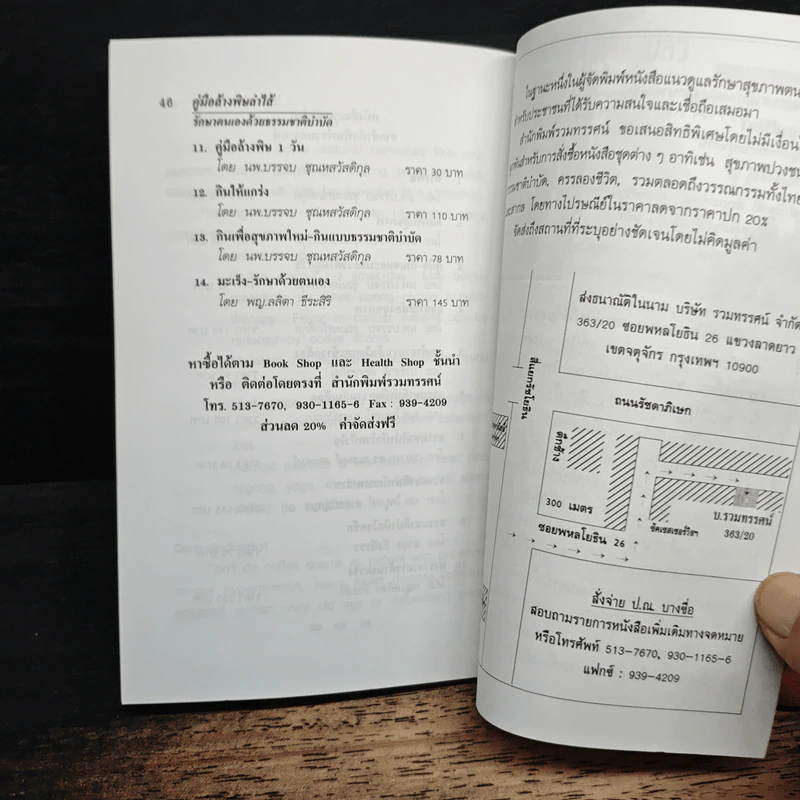 46 คู่มือล้างพิษลำไส้
รักษาตนเองด้วยธรรมชาติบำบัด
11. คู่มือล้างพิษ 1 วัน
โดย นพ.บรรจบ ชุณหสวัสดิกุล ราคา 30 บาท
12. กินให้แกร่ง
โดย นพ.บรรจบ ชุณหสวัสดิกุล ราคา 110 บาท
13. กินเพื่อสุขภาพใหม่-กินแบบธรรมชาติบำบัด
โดย นพ.บรรจบ ชุณหสวัสดิกุล ราคา 78 บาท
14. มะเร็ง-รักษาด้วยตนเอง
โดย พญ.ลลิตา ธีระสิริ ราคา 145 บาท
หาซื้อได้ตาม Book Shop และ Health Shop ชั้นนำ
หรือ ติดต่อโดยตรงที่ สำนักพิมพ์รวมทรรศน์
โทร. 513-7670, 930-1165-6 Fax : 939-4209
ส่วนลด 20% ค่าจัดส่งฟรี
ในฐานะหนึ่งในผู้จัดพิมพ์หนังสือแนวดูแลรักษาสุขภาพตน
สำหรับประชาชนที่ได้รับความสนใจและเชื่อถือเสมอมา
สำนักพิมพ์รวมทรรศน์ ขอเสนอสิทธิพิเศษโดยไม่มีเงื่อน
สำหรับการสั่งซื้อหนังสือชุดต่าง ๆ อาทิเช่น สุขภาพปวงชน
บำบัด, ครรลองชีวิต, รวมตลอดถึงวรรณกรรมทั้งไทย
โดยทางไปรษณีย์ในราคาลดจากราคาปก 20%
จัดส่งถึงสถานที่ที่ระบุอย่างชัดเจนโดยไม่คิดมูลค่า
ส่งธนาณัติในนาม บริษัท รวมทรรศน์ จำกัด
363/20 ซอยพหลโยธิน 26 แขวงลาดยาว
เขตจตุจักร กรุงเทพฯ 10900
สี่แยกรัชโยธิน
ถนนรัชดาภิเษก
ตึกช้าง
300 เมตร
บ.รวมทรรศน์
363/20
ซอยพหลโยธิน 26
สั่งจ่าย ป.ณ. บางซื่อ
สอบถามรายการหนังสือเพิ่มเติมทางจดหมาย
หรือโทรศัพท์ 513-7670, 930-1165-6
แฟกซ์ : 939-4209